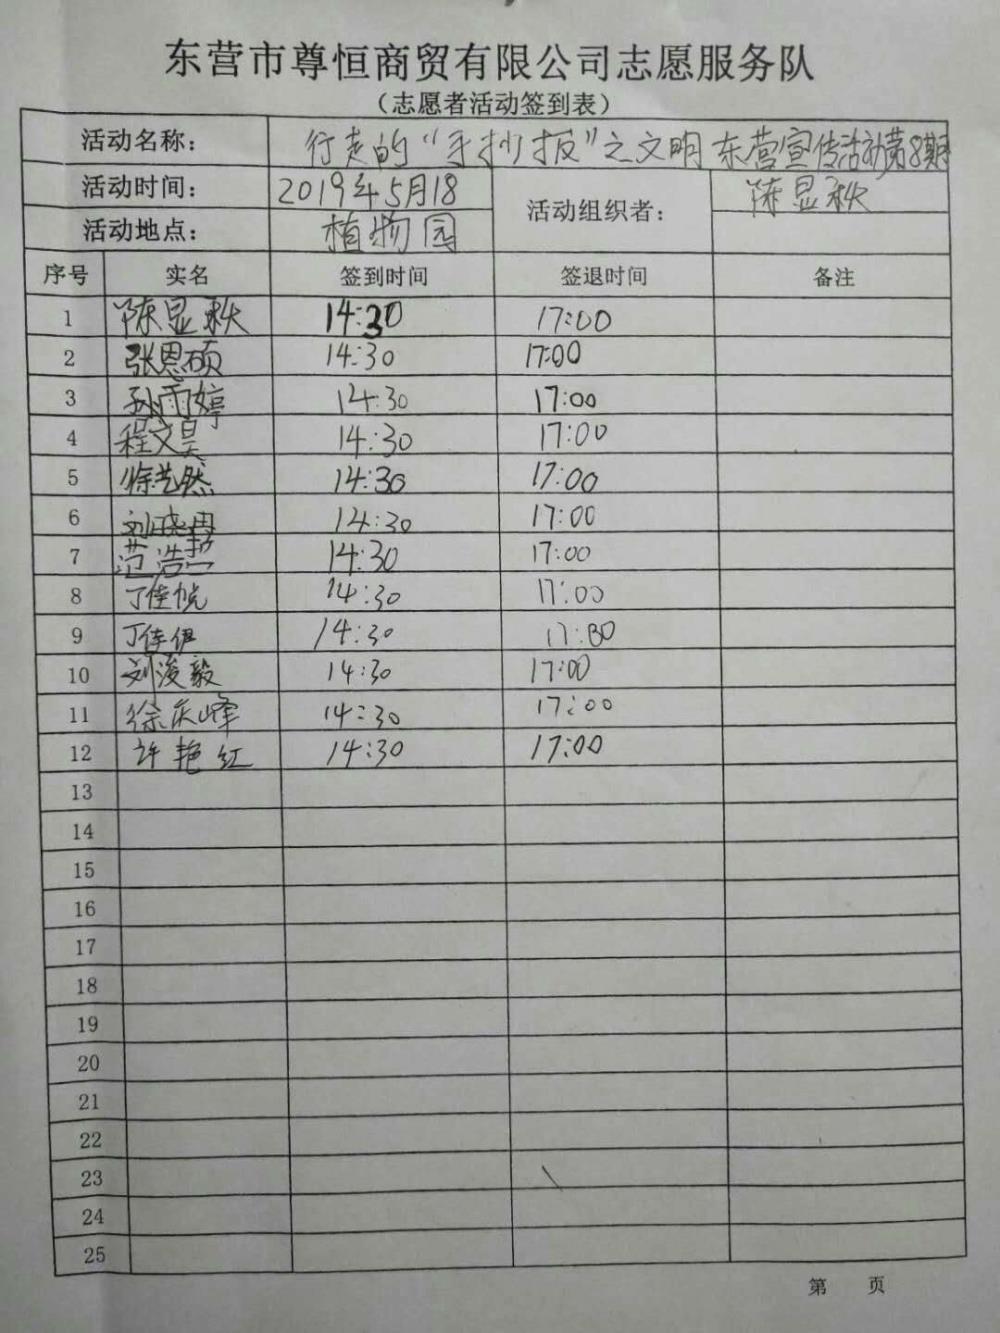 东营市尊恒商贸有限公司志愿服务队
（志愿者活动签到表）
活动名称： 行走的“手抄报”之文明东营宣传活动第8期
活动时间： 2019年5月18 活动组织者： 陈显秋
活动地点： 植物园
序号 实名 签到时间 签退时间 备注
1 陈显秋 14:30 17:00
2 张恩硕 14:30 17:00
3 孙雨婷 14:30 17:00
4 程文昊 14:30 17:00
5 徐艺然 14:30 17:00
6 刘晓冉 14:30 17:00
7 范浩 14:30 17:00
8 丁佳悦 14:30 17:00
9 丁佳伊 14:30 17:
10 刘浚毅 14:30 17:00
11 徐庆峰 14:30 17:00
12 许艳红 14:30 17:00
13
14
15
16
17
18
19
20
21
22
23
24
25
第 页